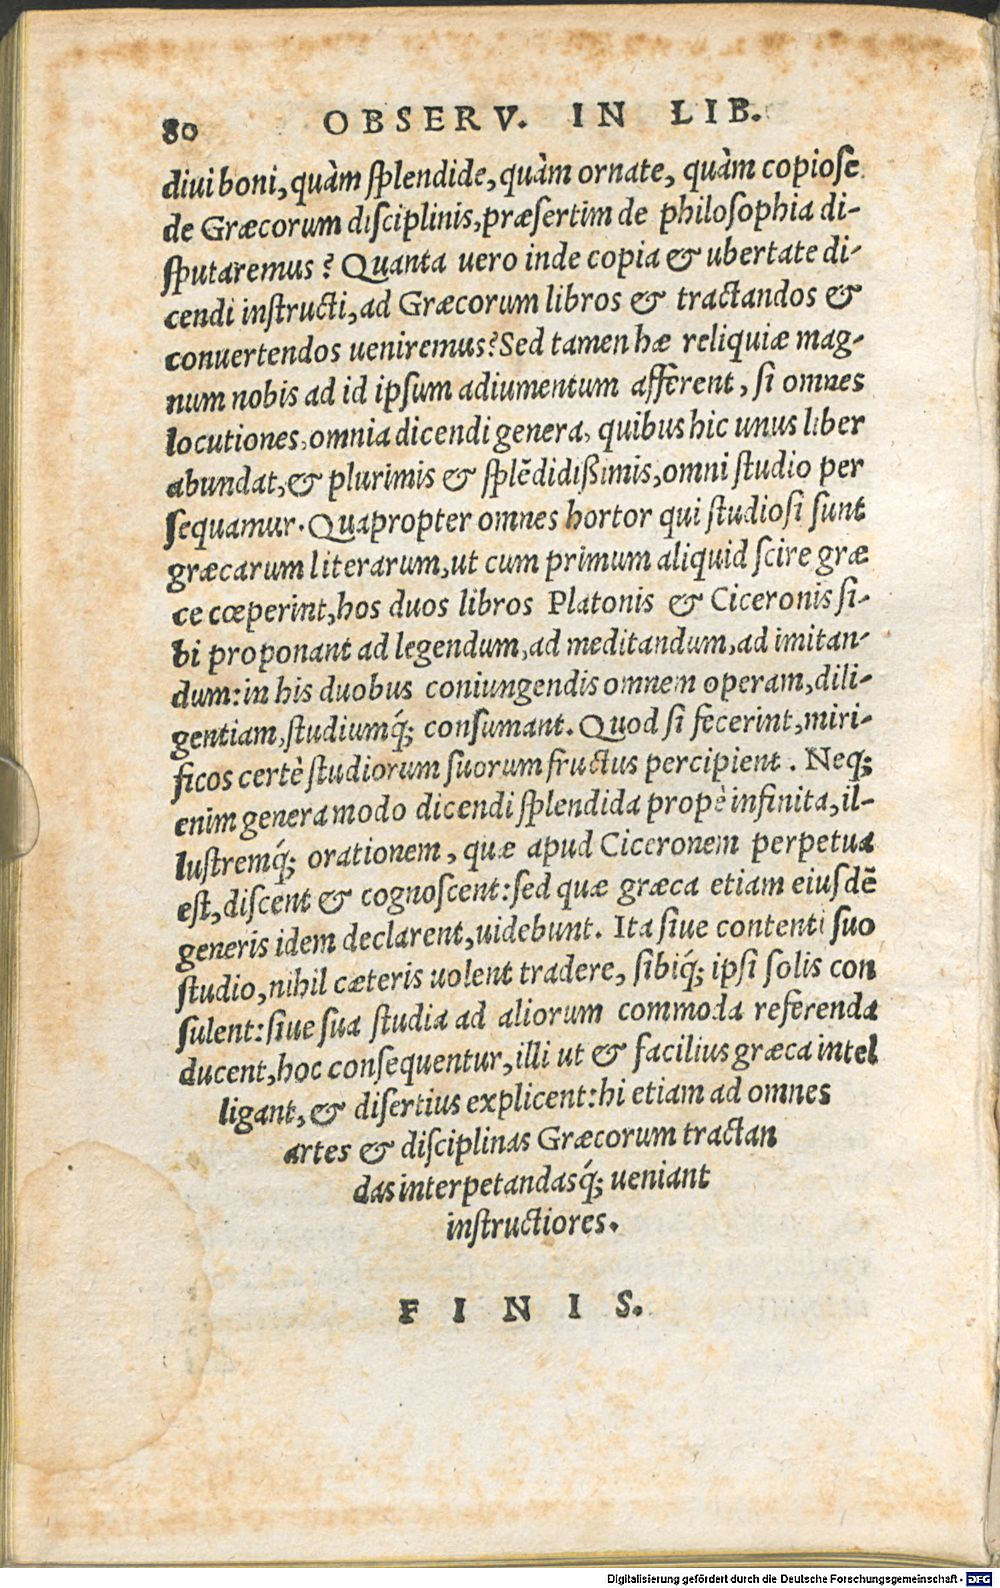 80 OBSERV. IN LIB.
diui boni, quàm ſplendide, quàm ornate, quàm copioſe
de Græcorum diſciplinis, præſertim de philoſophia di-
ſputaremus? Quanta uero inde copia & ubertate di-
cendi inſtructi, ad Græcorum libros & tractandos &
conuertendos ueniremus? Sed tamen hæ reliquiæ mag-
num nobis ad id ipſum adiumentum afferent, ſi omnes
locutiones, omnia dicendi genera, quibus hic unus liber
abundat, & plurimis & ſplēdidißimis, omni ſtudio per
ſequamur. Quapropter omnes hortor qui ſtudioſi ſunt
græcarum literarum, ut cum primum aliquid ſcire græ
ce cœperint, hos duos libros Platonis & Ciceronis ſi-
bi proponant ad legendum, ad meditandum, ad imitan-
dum: in his duobus coniungendis omnem operam, dili-
gentiam, ſtudiumq́; conſumant. Quod ſi fecerint, miri-
ficos certè ſtudiorum ſuorum fructus percipient. Neq;
enim genera modo dicendi ſplendida propè infinita, il-
luſtremq́; orationem, quæ apud Ciceronem perpetua
eſt, diſcent & cognoſcent: ſed quæ græca etiam eiuſdē
generis idem declarent, uidebunt. Ita ſiue contenti ſuo
ſtudio, nihil cæteris uolent tradere, ſibiq́; ipſi ſolis con
ſulent: ſiue ſua ſtudia ad aliorum commoda referenda
ducent, hoc conſequentur, illi ut & facilius græca intel
ligant, & diſertius explicent: hi etiam ad omnes
artes & diſciplinas Græcorum tractan
das interpetandasq́; ueniant
inſtructiores.
FINIS.
Digitalisierung gefördert durch die Deutsche Forschungsgemeinschaft - DFG